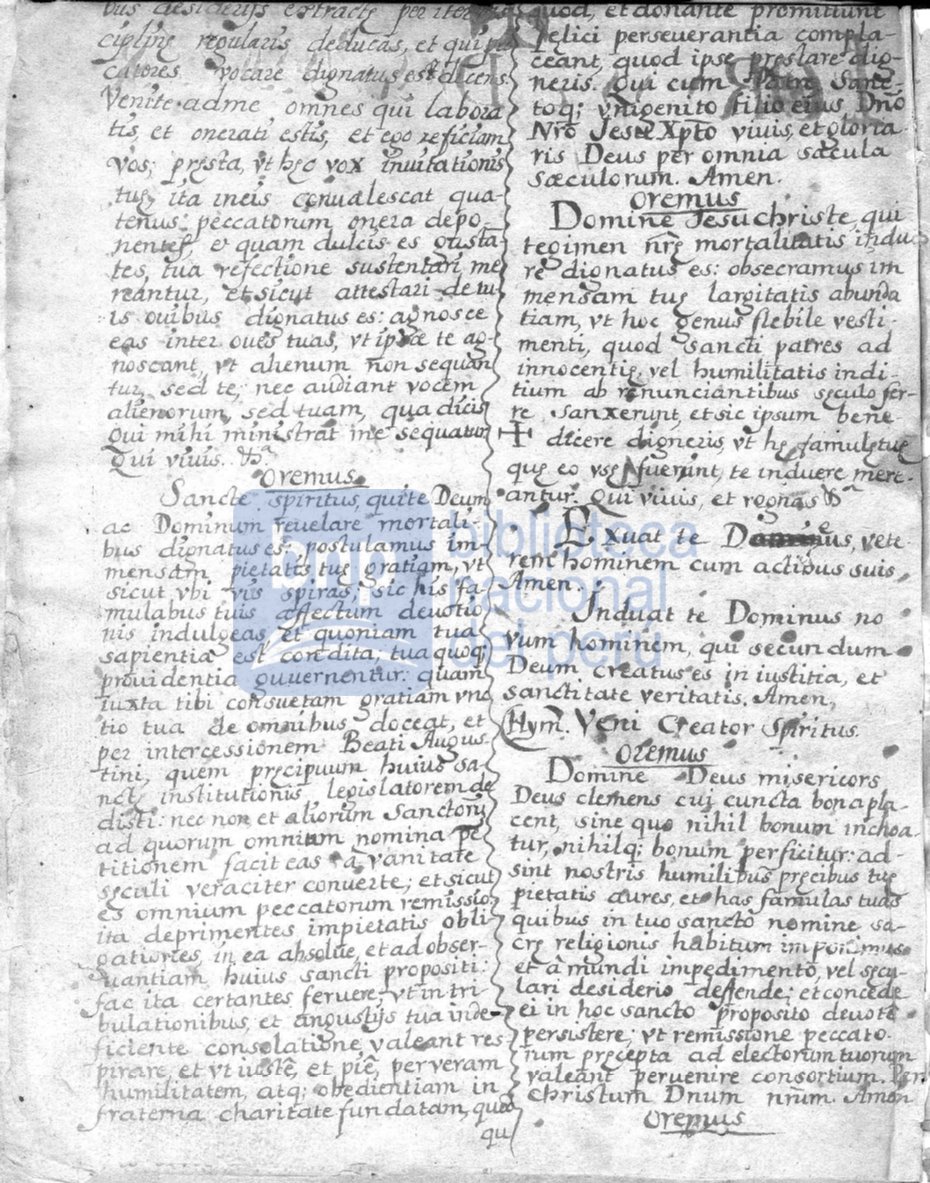 bus desiderijs extracte per iter
cipline regularis deducas, et qui pe
catores vocare dignatus es dicens
Venite adme omnes qui labora
tis, et onerati estis, et ego reficiam
vos; presta, vt hec vox invitationis
tue ita ineis convalescat qua-
tenus peccatorum onera depo-
nentes, et quam dulcis es gusta-
tes, tua refectione sustentari me
reantur, et sicut attestari de tu
is ouibus dignatus es: agnosce
eas inter oues tuas, vt ipsæ te ag-
noscant, vt alienum non sequan
tur, sed te; nec audiant vocem
alienorum, sed tuam, qua dicis
Qui mihi ministrat me sequatur
Qui viuis.
oremus
Sancte spiritus, quite Deum
ac Dominum reuelare mortali-
bus dignatus es: postulamus im-
mensam pietatis tue gratiam, vt
sicut vbi vis spiras, sic his fa-
mulabus tuis affectum deuotio
nis indulgeas, et quoniam tua
sapientia est condita, tua quoq;
prouidentia guuernentur: quam
iuxta tibi consuetam gratiam vnc
tio tua de omnibus doceat, et
per intercessionem Beati Augus-
tini, quem precipuum huius sa-
ncte institutionis legislatorem de
disti: nec non et aliorum Sanctorũ
ad quorum omnium nomina pe
titionem facit eas a vanitate
seculi veraciter conuerte; et sicut
es omnium peccatorum remissio
ita deprimentes impietatis obli-
gationes, in ea absolue, et ad obser-
uantiam huius sancti propositi:
fac ita certantes feruere; vt in tri-
bulationibus, et angustijs tua inde-
ficiente consolatione valeant res
pirare, et vt iustẽ, et piẽ, per veram
humilitatem, atq; obedientiam in
fraterna charitate fundatam, quod
qu
quod, et donante promittunt
felici perseuerantia compla-
ceant, quod ipse prestare dig-
neris. Qui cum Patre Sanc-
toq; vnigenito filio eius Dnõ
Nrõ Jesu Xpto viuis, et gloria
ris Deus per omnia sæcula
sæculorum. Amen.
oremus
Domine Jesuchriste, qui
tegimen nrẽ mortalitatis indue
re dignatus es: obsecramus im
mensam tue largitatis abunda
tiam, vt hoc genus flebile vesti-
menti, quod sancti patres ad
innocentie, vel humilitatis indi-
tium ab renunciantibus seculo fer-
re sanxerunt, et sic ipsum bene-
+ dicere digneris, vt he famule tue
que eo vse fuerint, te induere mere-
antur. Qui viuis, et regnas
Exuat te Dominus, vete-
rem hominem cum actibus suis,
Amen.
Induat te Dominus no
vum hominem, qui secundum
Deum creatus es in iustitia, et
sanctitate veritatis. Amen,
Hym. Veni Creator Spiritus.
oremus
Domine Deus misericors
Deus clemens cui cuncta bona pla-
cent, sine quo nihil bonum inchoa-
tur, nihilq; bonum perficitur: ad-
sint nostris humilibus precibus tue
pietatis aures, et has famulas tuas
quibus in tuo sancto nomine sa-
cre religionis habitum imponimus
et â mundi impedimento, vel secu-
lari desiderio deffende; et concede
ei in hoc sancto proposito deuote
persistere; vt remissione peccato-
rum precepta ad electorum tuorum
valeant peruenire consortium. Per
christum Dnum nrũm. Amen
oremus
bnp
biblioteca
nacional
del perú